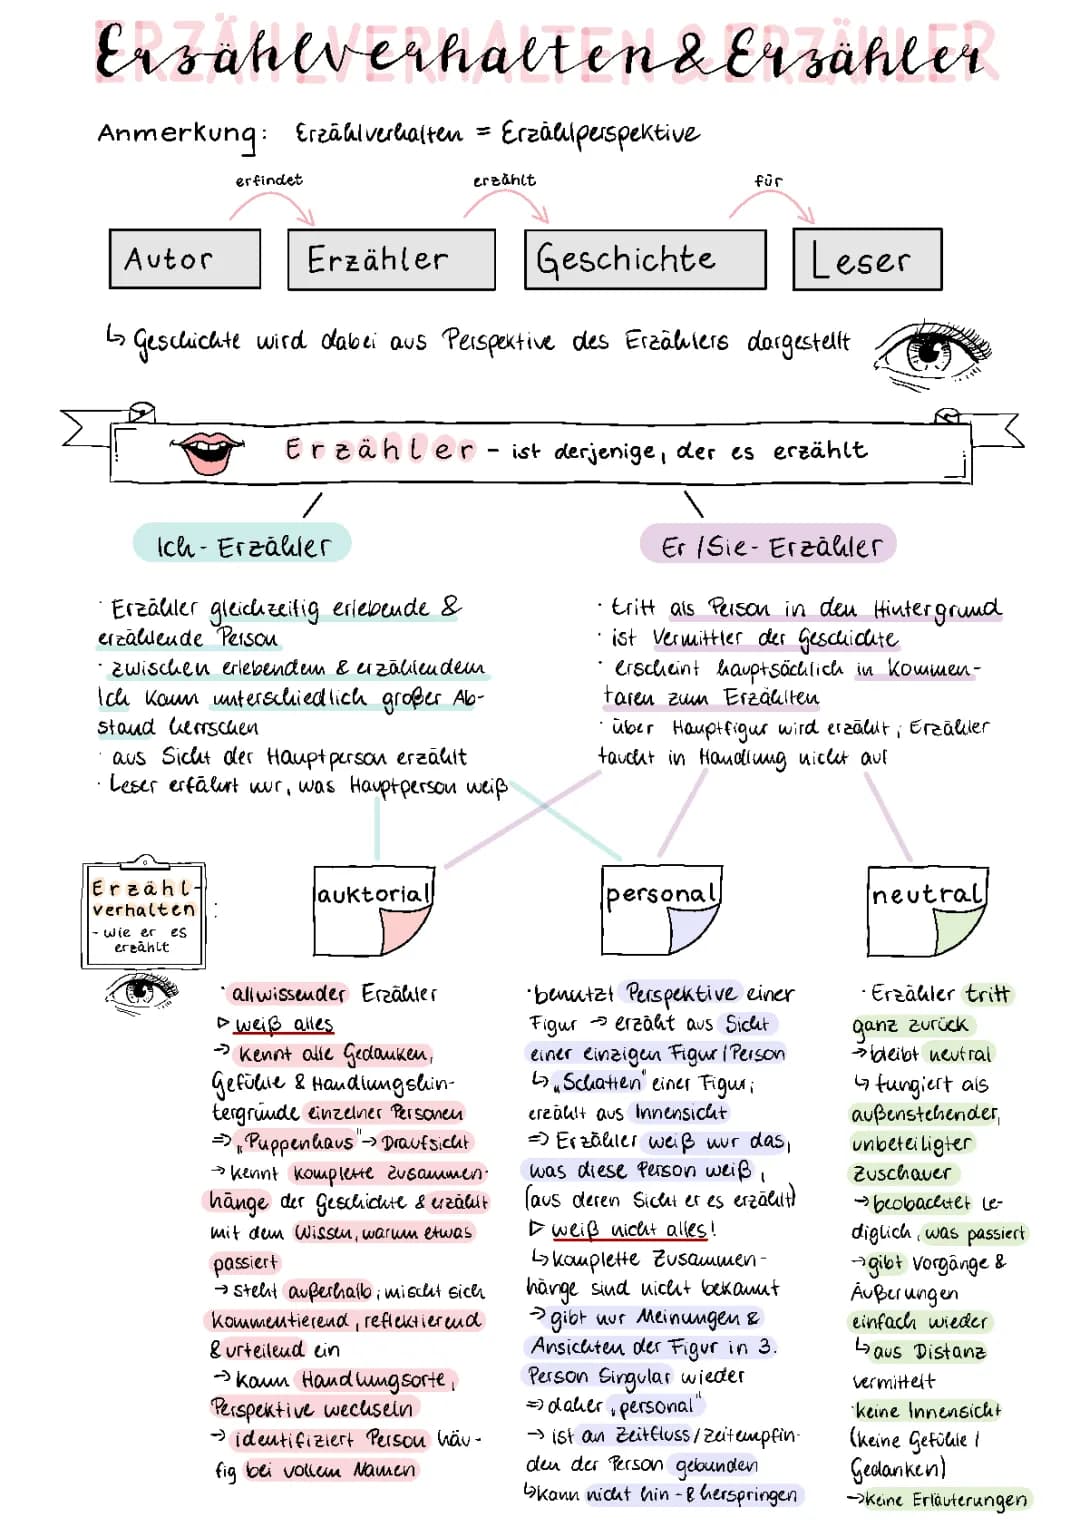 Erzählverhalten & Erzähler
ERZÄHLVERHALTEN & ERZÄHLER
Anmerkung: Erzählverhalten = Erzählperspektive
erfindet erzählt für
Autor Erzähler Geschichte Leser
↳ Geschichte wird dabei aus Perspektive des Erzählers dargestellt
Erzähler - ist derjenige, der es erzählt
Ich - Erzähler
· Erzähler gleichzeitig erlebende &
erzählende Person
· zwischen erlebendem & erzählendem
Ich kann unterschiedlich großer Ab-
stand herrschen
· aus Sicht der Hauptperson erzählt
· Leser erfährt nur, was Hauptperson weiß
Er /Sie - Erzähler
· tritt als Person in den Hintergrund
· ist Vermittler der Geschichte
· erscheint hauptsächlich in Kommen-
taren zum Erzählten
· über Hauptfigur wird erzählt; Erzähler
taucht in Handlung nicht auf
Erzähl-
verhalten
- wie er es
erzählt
:
auktorial
· allwissender Erzähler
▷ weiß alles
→ kennt alle Gedanken,
Gefühle & Handlungshin-
tergründe einzelner Personen
⇒ „Puppenhaus" → Draufsicht
→ kennt komplette Zusammen-
hänge der Geschichte & erzählt
mit dem Wissen, warum etwas
passiert
→ steht außerhalb; mischt sich
kommentierend, reflektierend
& urteilend ein
→ kann Handlungsorte,
Perspektive wechseln
→ identifiziert Person häu-
fig bei vollem Namen
personal
· benutzt Perspektive einer
Figur → erzählt aus Sicht
einer einzigen Figur / Person
↳ „Schatten" einer Figur;
erzählt aus Innensicht
⇒ Erzähler weiß nur das,
was diese Person weiß,
(aus deren Sicht er es erzählt)
▷ weiß nicht alles!
↳ komplette Zusammen-
hänge sind nicht bekannt
→ gibt nur Meinungen &
Ansichten der Figur in 3.
Person Singular wieder
⇒ daher „personal"
→ ist an Zeitfluss / Zeitempfin-
den der Person gebunden
↳ kann nicht hin - & herspringen
neutral
· Erzähler tritt
ganz zurück
→ bleibt neutral
↳ fungiert als
außenstehender,
unbeteiligter
Zuschauer
→ beobachtet le-
diglich, was passiert
→ gibt Vorgänge &
Äußerungen
einfach wieder
↳ aus Distanz
vermittelt
· keine Innensicht
(keine Gefühle /
Gedanken)
→ keine Erläuterungen